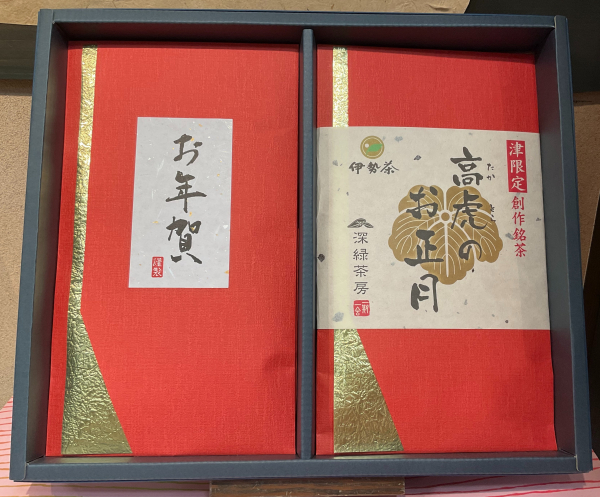 お年賀
謹製
津限定
創作銘茶
高虎の
たか とら
お正月
伊勢茶
深緑茶房